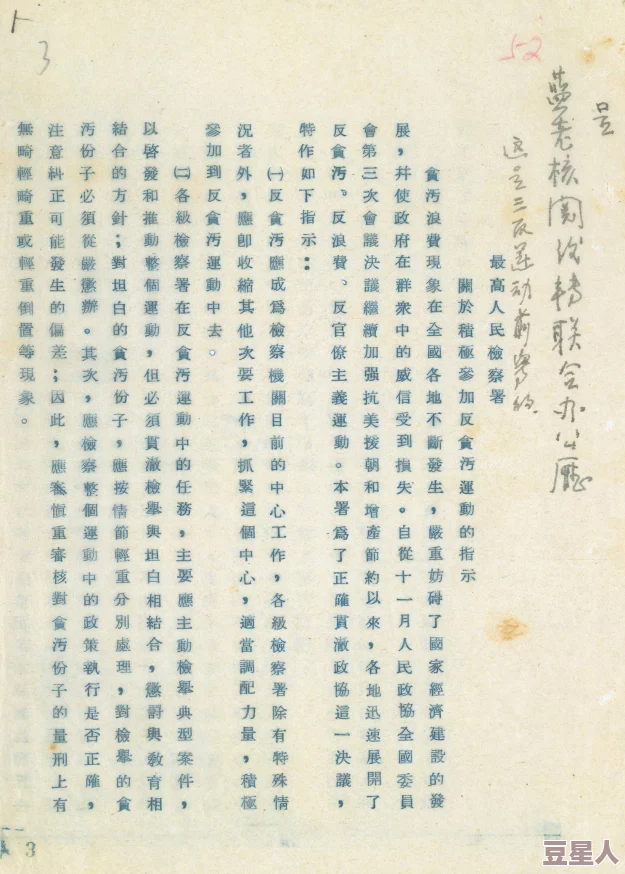 52
呈
蓝老核阅后转联合办公厅
这是三反运动前写的
最高人民檢察署
關於積極參加反貪汚運動的指示
貪汚浪費現象在全國各地不斷發生，嚴重妨碍了國家經濟建設的發
展，并使政府在群衆中的威信受到損失。自從十一月人民政協全國委員
會第三次會議決議繼續加强抗美援朝和增產節約以來，各地迅速展開了
反貪汚。反浪費、反官僚主義運動。本署爲了正確貫澈政協這一決議，
特作如下指示：
㈠反貪汚應成爲檢察機關目前的中心工作，各級檢察署除有特殊情
況者外，應卽收縮其他次要工作，抓緊這個中心，適當調配力量，積極
參加到反貪汚運動中去。
㈡各級檢察署在反貪汚運動中的任務，主要應主動檢舉典型案件，
以啓發和推動整個運動，但必須貫澈檢舉與坦白相結合，懲罰與敎育相
結合的方針；對坦白的貪汚份子，應按情節輕重分別處理，對檢舉的貪
汚份子必須從嚴懲辦。其次，應檢察整個運動中的政策執行是否正確，
注意糾正可能發生的偏差；因此，應審愼重審核對貪汚份子的量刑上有
無畸輕畸重或輕重倒置等現象。
3
3
豆星人